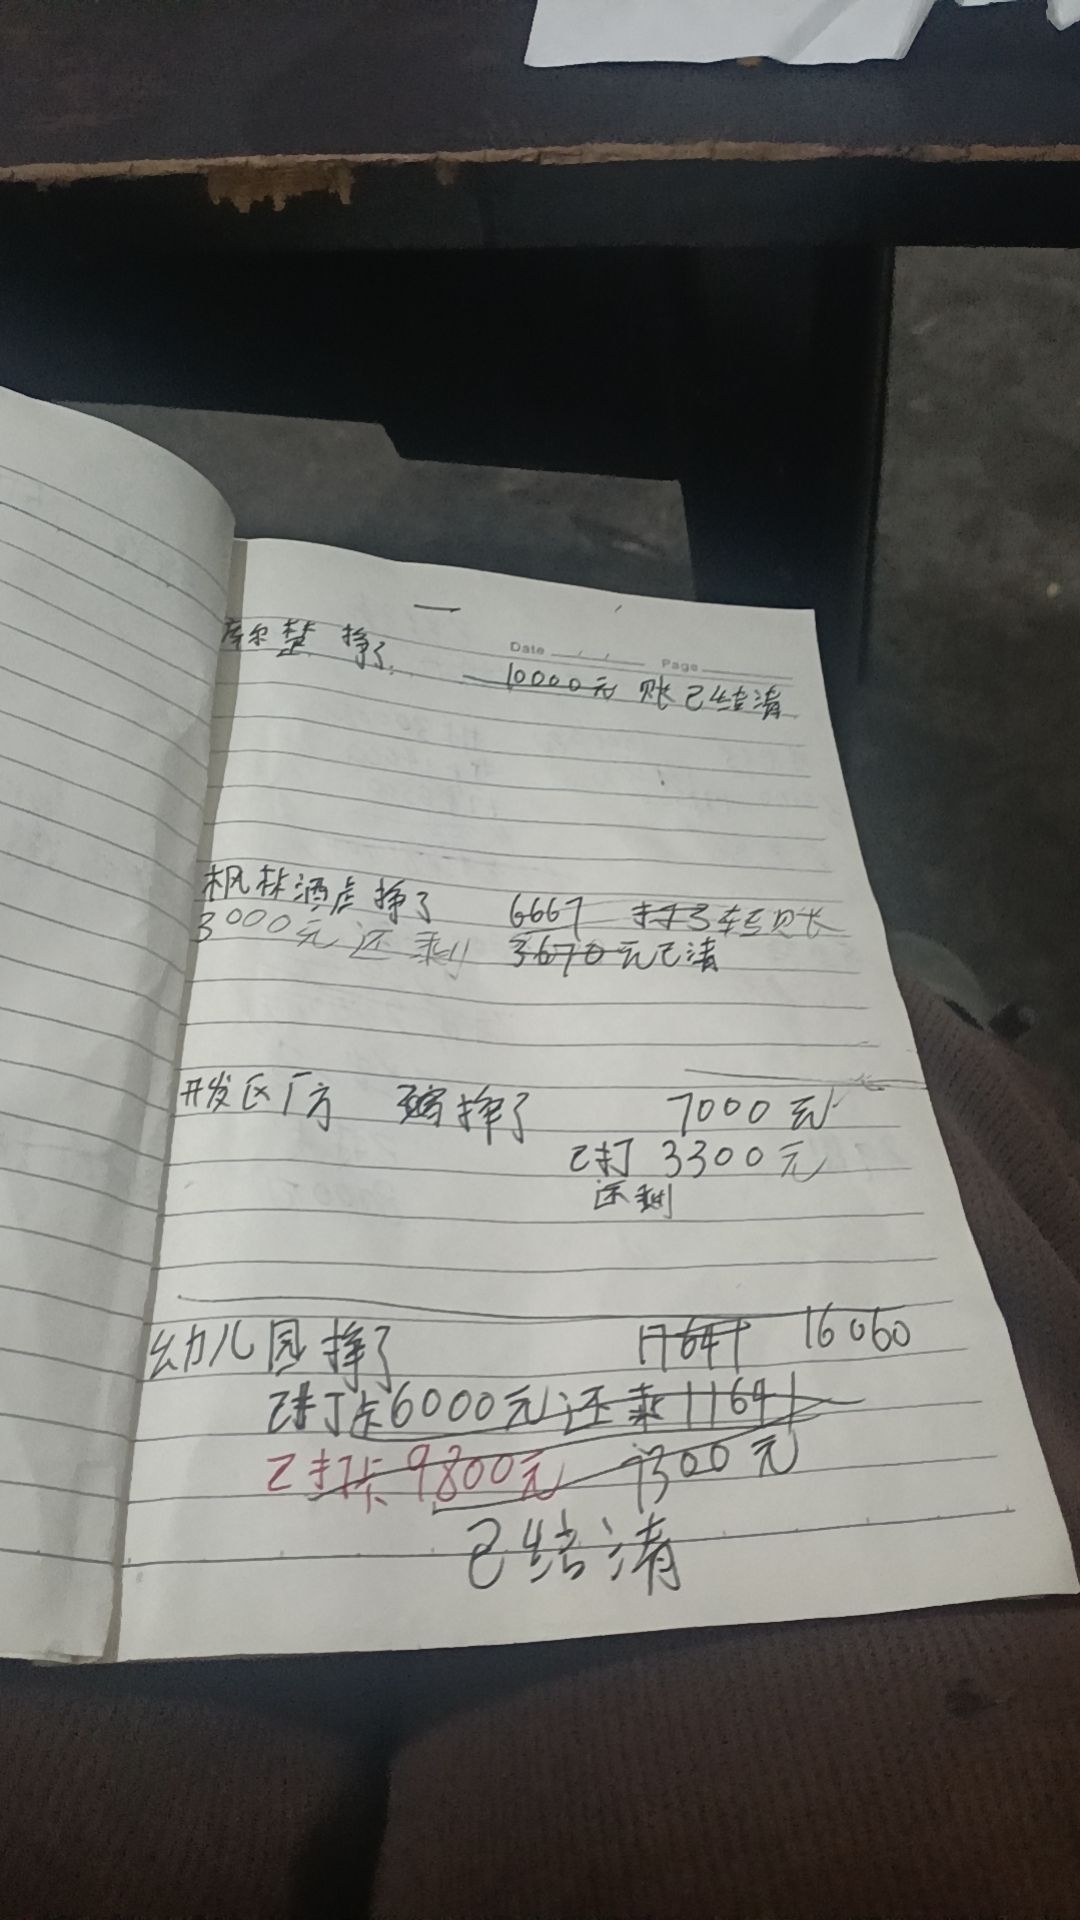 库尔楚 挣了
Date Page
10000元 账已结清
枫林酒店挣了 6667 打了转账
3000元 还剩 3670元已清
开发区厂方 挣了 7000元
已打 3300元
还剩
幼儿园挣了 17641 16060
已打卡6000元还剩11641
已打卡9800元 7300元
已结清